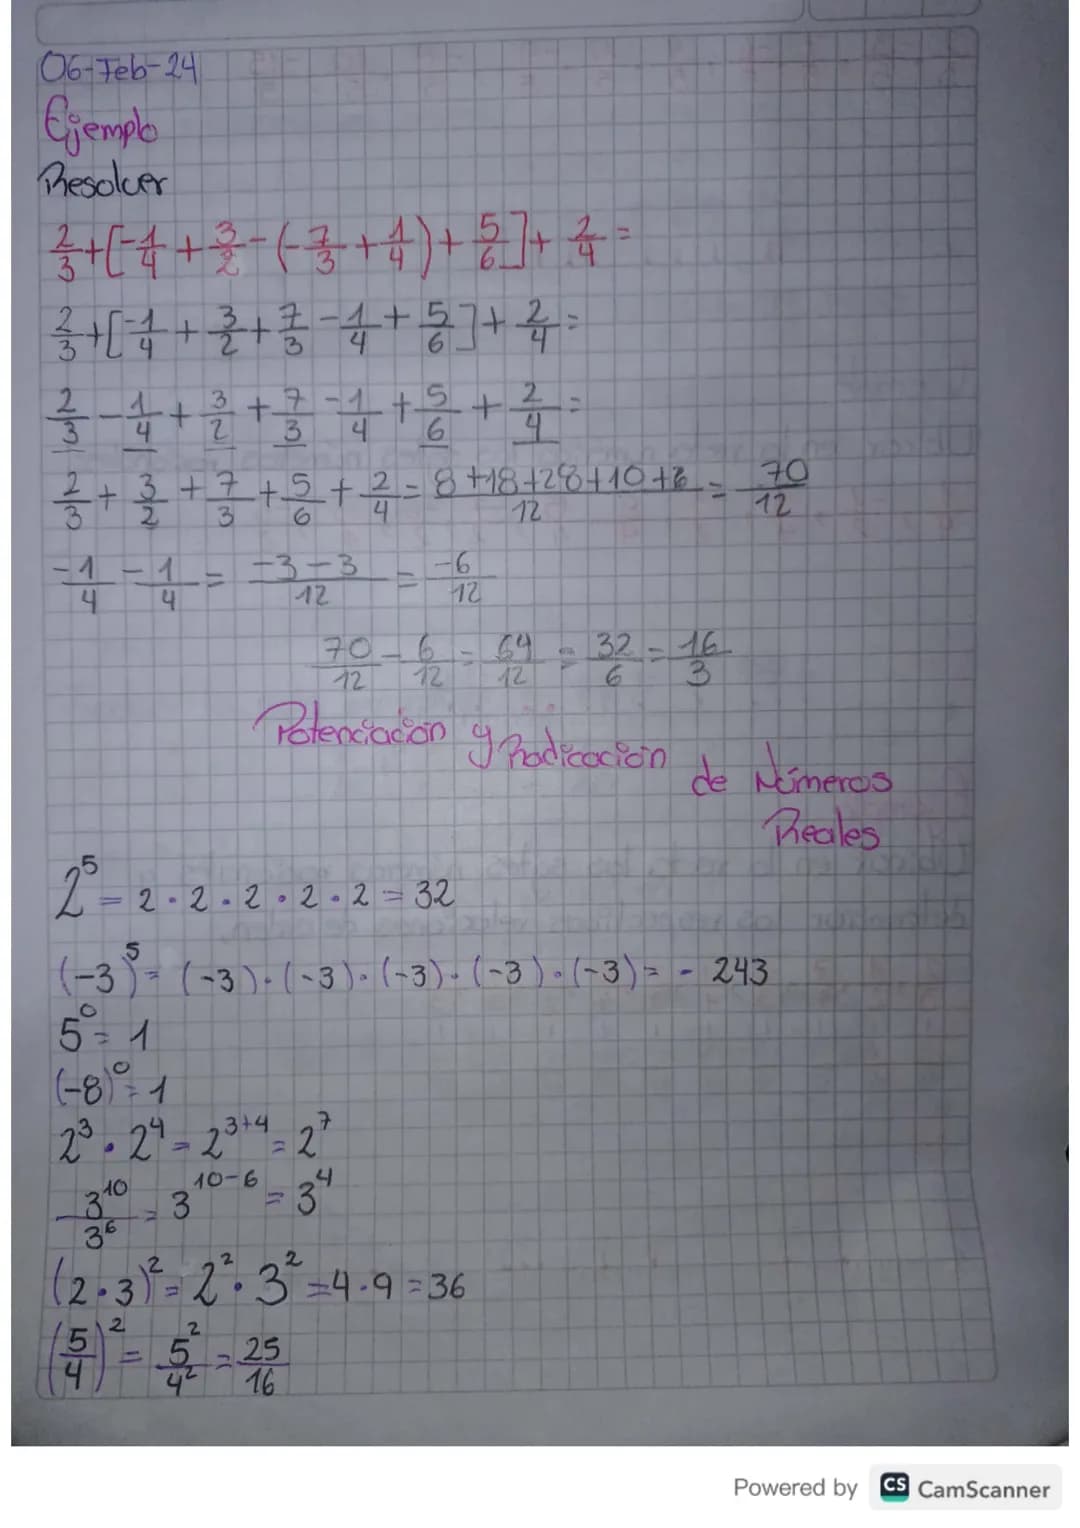 06-Feb-24
Ejemplo
Resolver
2/3 + [-1/4 + 3/2 - (-7/3 + 1/4) + 5/6] + 2/4 =
2/3 + [-1/4 + 3/2 + 7/3 - 1/4 + 5/6] + 2/4 =
2/3 - 1/4 + 3/2 + 7/3 - 1/4 + 5/6 + 2/4 =
2/3 + 3/2 + 7/3 + 5/6 + 2/4 = 8+18+28+10+6/12 = 70/12
-1/4 - 1/4 = -3-3/12 = -6/12
70/12 - 6/12 = 64/12 = 32/6 = 16/3
Potenciación y Radicación de Números
Reales
2^5 = 2 · 2 · 2 · 2 · 2 = 32
(-3)^5 = (-3) · (-3) · (-3) · (-3) · (-3) = - 243
5^0 = 1
(-8)^0 = 1
2^3 · 2^4 = 2^3+4 = 2^7
3^10/3^6 = 3^10-6 = 3^4
(2·3)^2 = 2^2 · 3^2 = 4·9 = 36
(5/4)^2 = 5^2/4^2 = 25/16
Powered by CS CamScanner